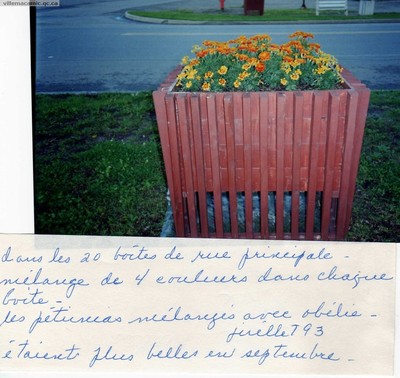 villemacamic.qc.ca
dans les 20 boîtes de rue principale -
mélange de 4 couleurs dans chaque
boîte -
les pétunias mélangés avec obélie -
juillet 93
étaient plus belles en septembre -